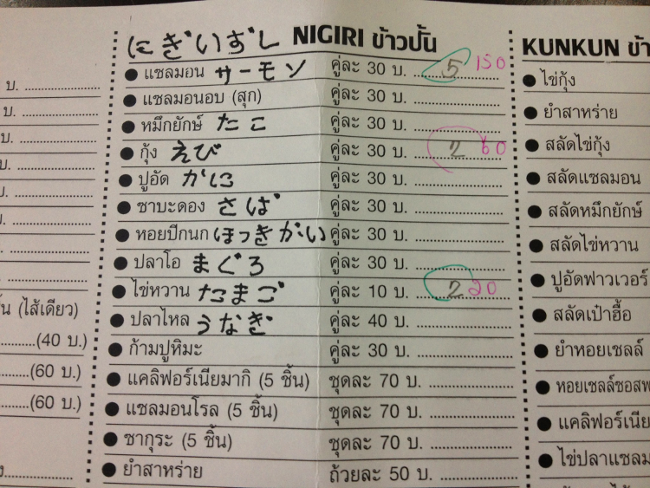 にぎいずし NIGIRI ข้าวปั้น
● แซลมอน サーモン คู่ละ 30 บ. 5 150
● แซลมอนอบ (สุก) คู่ละ 30 บ.
● หมึกยักษ์ たこ คู่ละ 30 บ.
● กุ้ง えび คู่ละ 30 บ. 2 60
● ปูอัด かに คู่ละ 30 บ.
● ซาบะดอง さば คู่ละ 30 บ.
● หอยปีกนก ほっきがい คู่ละ 30 บ.
● ปลาโอ まぐろ คู่ละ 30 บ.
● ไข่หวาน たまご คู่ละ 10 บ. 2 20
● ปลาไหล うなぎ คู่ละ 40 บ.
● ก้ามปูหิมะ คู่ละ 30 บ.
● แคลิฟอร์เนียมากิ (5 ชิ้น) ชุดละ 70 บ.
● แซลมอนโรล (5 ชิ้น) ชุดละ 70 บ.
● ซากุระ (5 ชิ้น) ชุดละ 70 บ.
● ยำสาหร่าย ถ้วยละ 50 บ.
KUNKUN ข้า
● ไข่กุ้ง
● ยำสาหร่าย
● สลัดไข่กุ้ง
● สลัดแซลมอน
● สลัดหมึกยักษ์
● สลัดไข่หวาน
● ปูอัดฟาวเวอร์
● สลัดเป๋าฮื้อ
● ยำหอยเชลล์
● หอยเชลล์ซอสพ
● แคลิฟอร์เนีย
● ไข่ปลาแซลม
บ.
บ.
บ.
บ.
บ.
บ.
บ.
(ไส้เดียว)
(40 บ.)
(60 บ.)
(60 บ.)